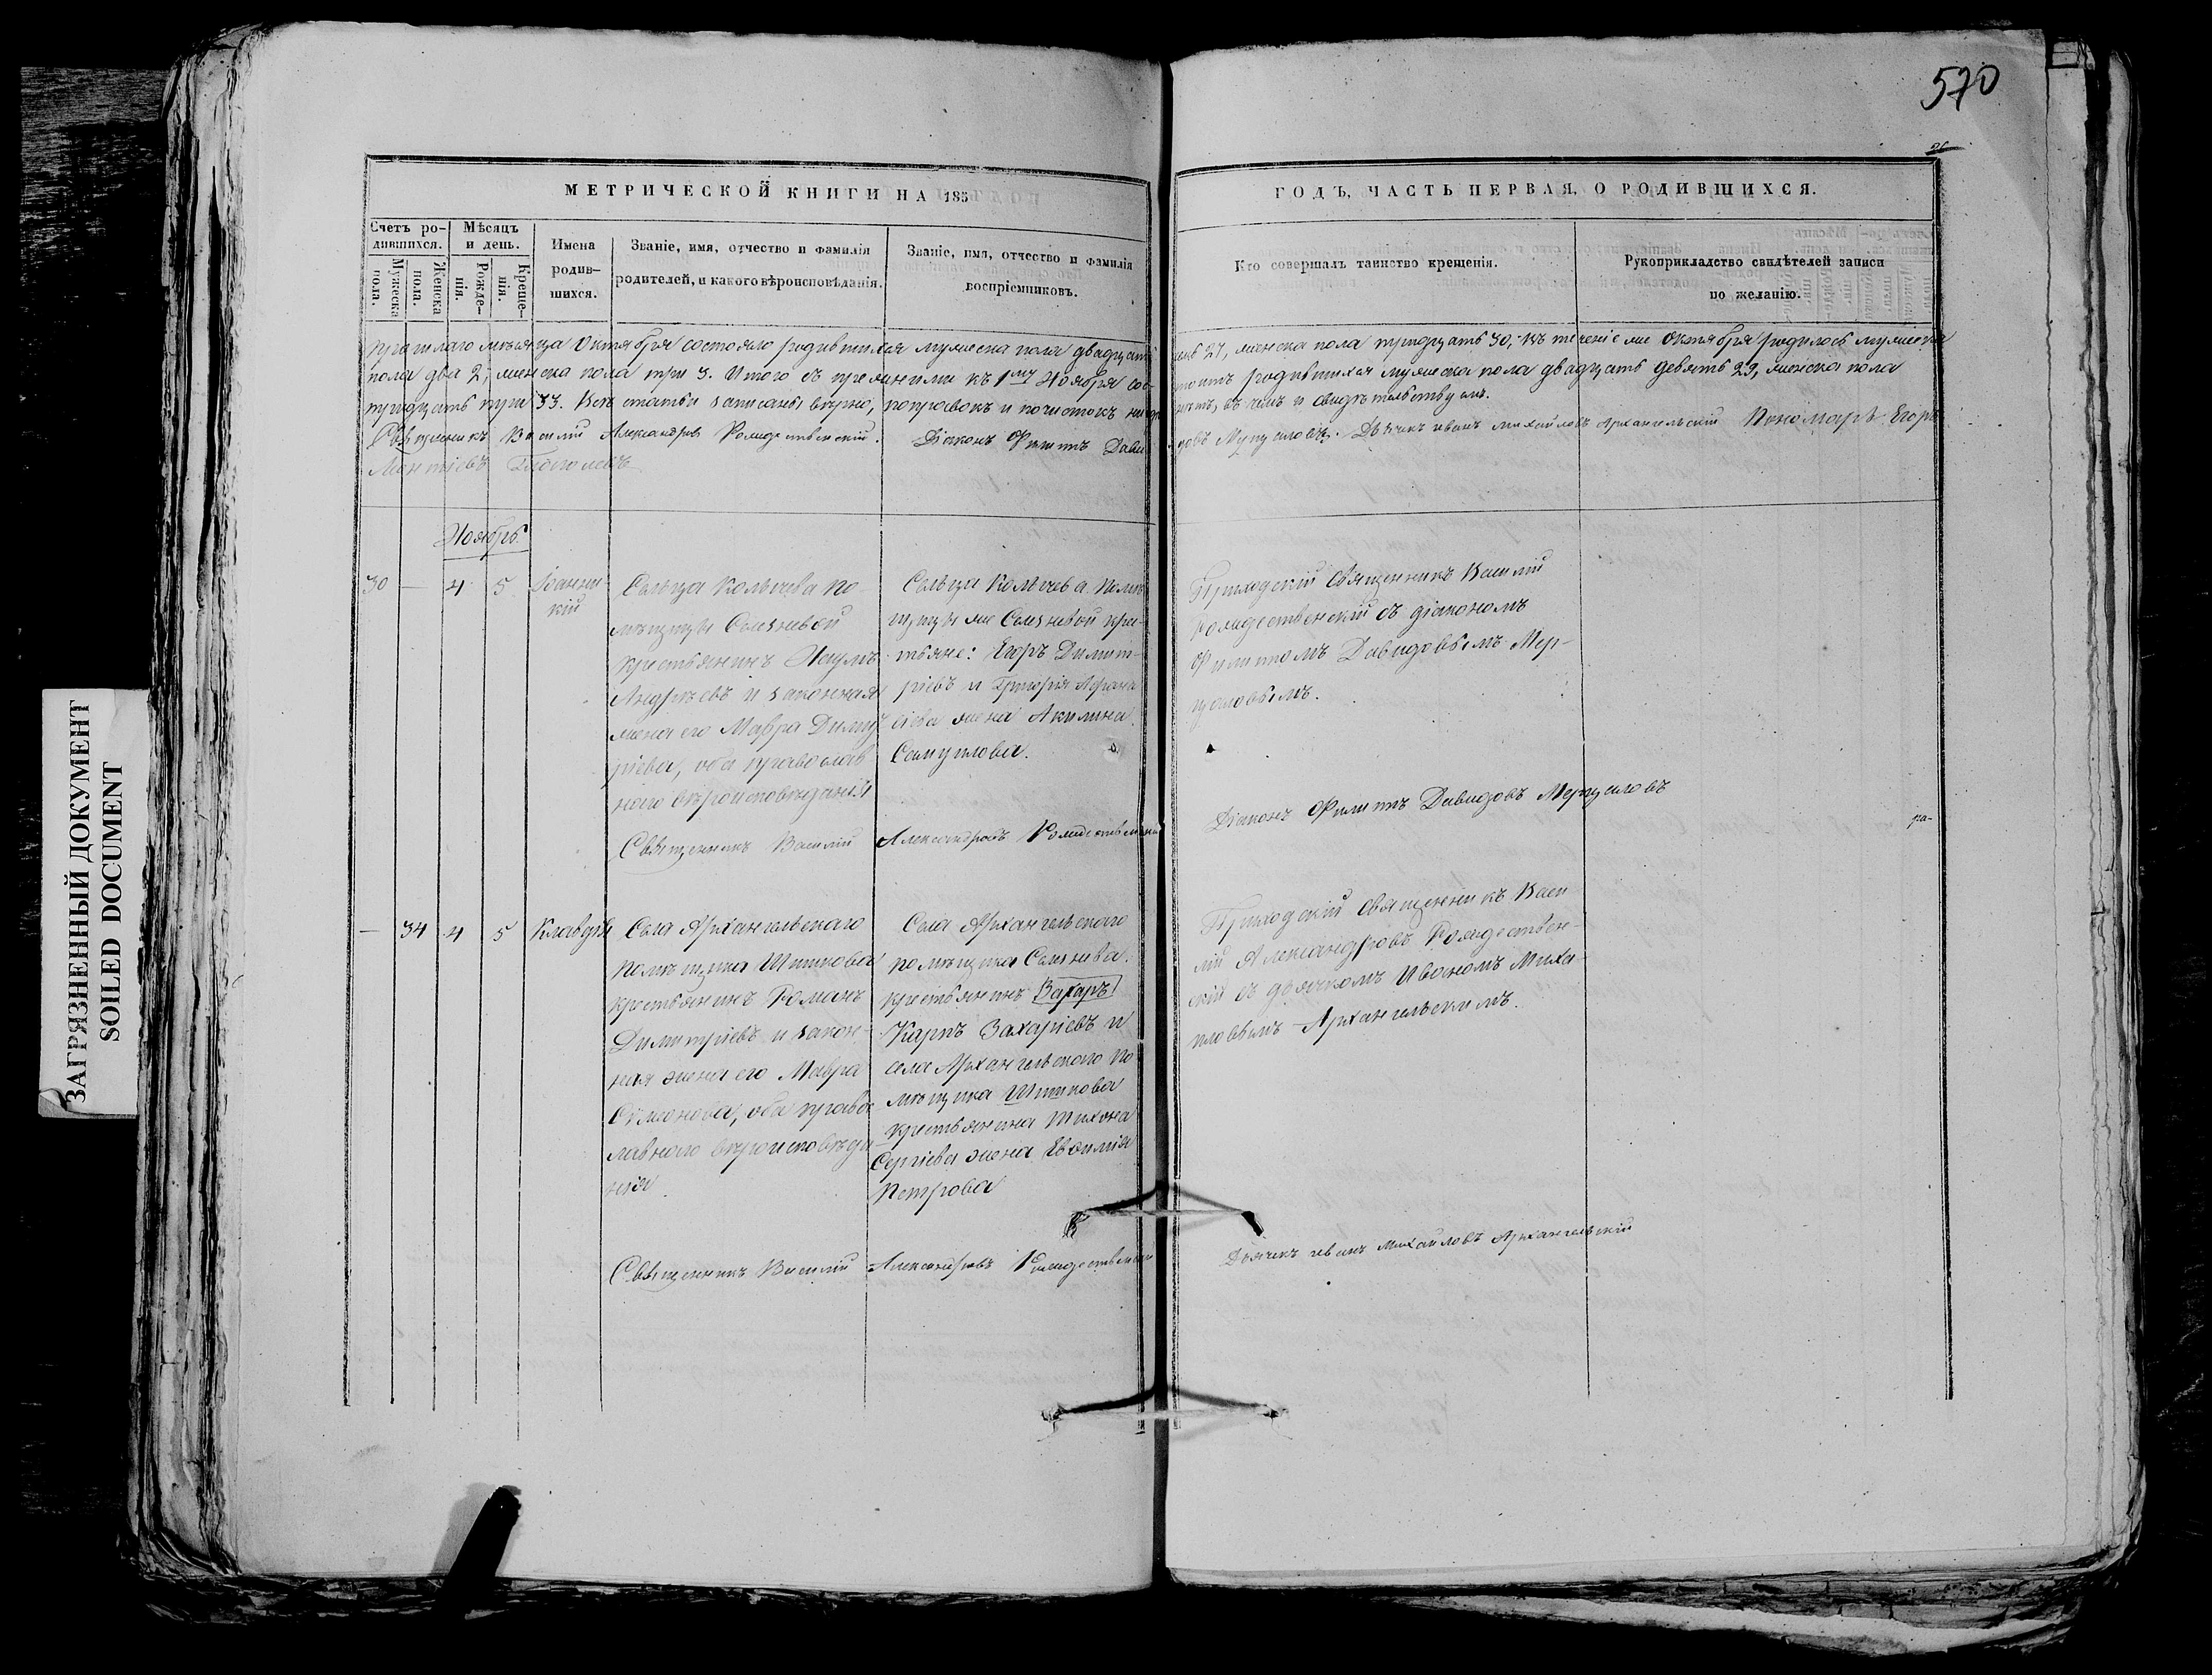 570
26
МЕТРИЧЕСКОЙ КНИГИ НА 185
ГОДЪ, ЧАСТЬ ПЕРВАЯ, О РОДИВШИХСЯ.
Счетъ ро-
дившихся.
Мужеска
пола.
Женска
пола.
Мѣсяцъ
и день.
Рожде-
нія.
Креще-
нія.
Имена
родив-
шихся.
Званіе, имя, отчество и фамилія
родителей, и какого вѣроисповѣданія.
Званіе, имя, отчество и фамилія
воспріемниковъ.
Кто совершалъ таинство крещенія.
Рукоприкладство свидѣтелей записи
по желанію.
мѣсяца Октября состояло родившихся мужеска пола двадцать
27, женска пола тридцать 30, въ теченіе же Октября родилось мужеска
пола два 2, женска пола три 3. Итого съ прежними къ 1му Ноября сос-
тоитъ родившихся мужеска пола двадцать девять 29, женска пола
тридцать три 33. Всѣ статьи записаны вѣрно, поправокъ и почистокъ
нѣтъ, въ чемъ и свидѣтельствуемъ.
Священникъ Василій Александровъ Рождественскій. Діаконъ Филиппъ Дави
довъ Мерцаловъ. Дьячекъ Иванъ Михайловъ Архангельскій Пономарь Егоръ
Глаголевъ
Ноябрь.
30 — 4 5
Сельца Колычева по-
мѣщицы Селезневой
крестьянинъ Наумъ
Андреевъ и законная
жена его Мавра Димит
ріева, оба православ
наго вѣроисповѣданія
Сельца Колычева помѣ
щицы же Селезневой крес-
тьяне: Егоръ Димит-
ріевъ и Григорія Афана
сіева жена Акилина
Самуилова.
Приходскій Священникъ Василій
Рождественскій съ діакономъ
Филиппомъ Давидовымъ Мер-
цаловымъ.
Священникъ Василій Александровъ Рождественскій
Діаконъ Филиппъ Давидовъ Мерцаловъ
ра-
— 34 4 5 Клавдія
Села Архангельскаго
помѣщика Шишкова
крестьянинъ Романъ
Димитріевъ и закон-
ная жена его Мавра
Симонова, оба правос
лавнаго вѣроисповѣда
нія
Села Архангельскаго
помѣщика Селезнева
крестьянинъ Захаръ
Карпъ Захаріевъ и
села Архангельскаго по
мѣщика Шишкова
крестьянина Тихона
Сергіева жена Евфимія
Петрова
Приходскій Священникъ Васи
лій Александровъ Рождествен-
скій съ дьячкомъ Иваномъ Миха-
иловымъ Архангельскимъ.
Священникъ Василій Александровъ Рождественскій
Дьячекъ Иванъ Михайловъ Архангельскій
ЗАГРЯЗНЕННЫЙ ДОКУМЕНТ
SOILED DOCUMENT